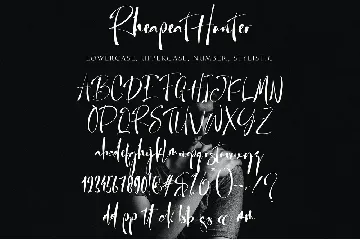 Rheapeat Hunter
LOWERCASE, UPPERCASE, NUMBER, STYLISTIC
ABCDEFGHIJKLMN
OPQRSTUVWXYZ
abcdefghijklmnopqrstuvwxyz
1234567890
dd pp tt